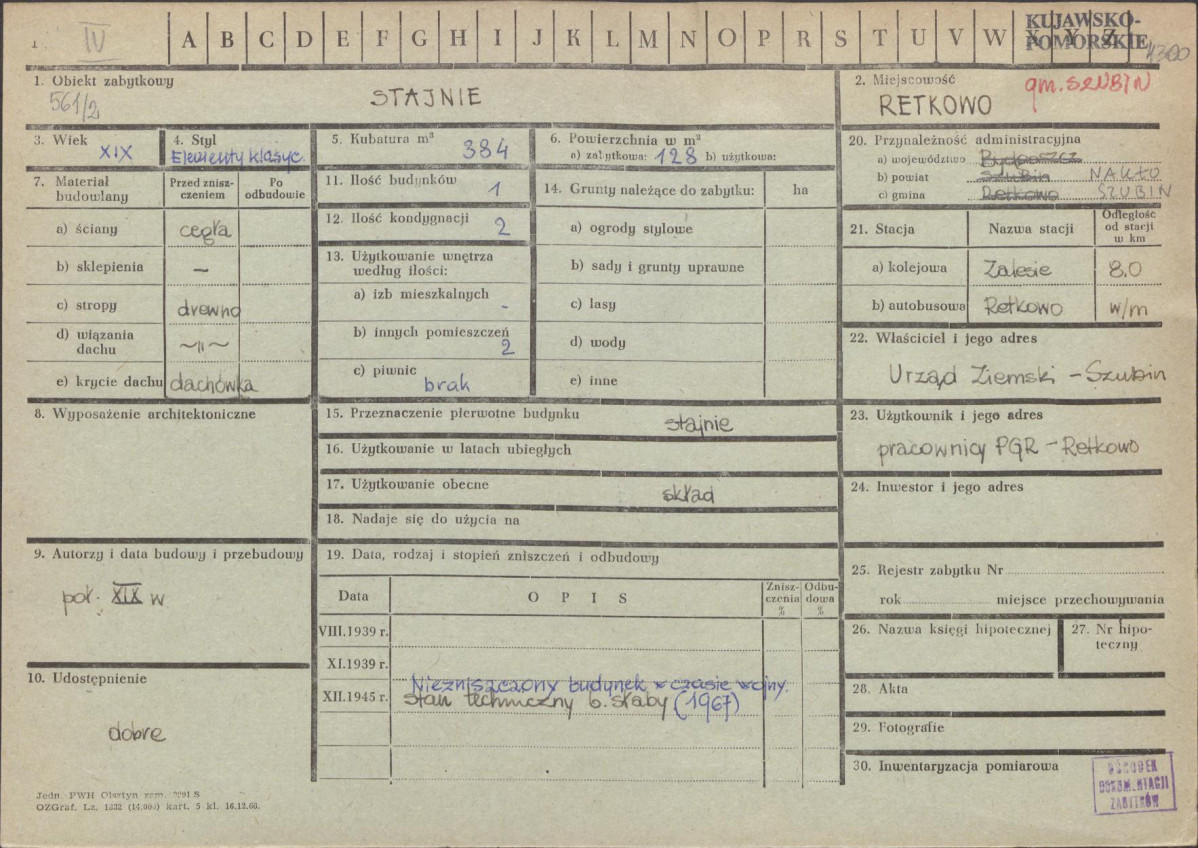 1 IV A B C D E F G H I J K L M N O P R S T U V W X Y Z
KUJAWSKO-
POMORSKIE
4300
1. Obiekt zabytkowy
561/2
STAJNIE
2. Miejscowość
gm. SZUBIN
RETKOWO
3. Wiek
XIX
4. Styl
Elementy klasyc.
5. Kubatura m³
384
6. Powierzchnia w m²
a) zabytkowa: 128 b) użytkowa:
7. Materiał budowlany
Przed zniszczeniem
Po odbudowie
a) ściany cegła
b) sklepienia —
c) stropy drewno
d) wiązania dachu ~ıı~
e) krycie dachu dachówka
8. Wyposażenie architektoniczne
9. Autorzy i data budowy i przebudowy
poł. XIX w
10. Udostępnienie
dobre
11. Ilość budynków
1
12. Ilość kondygnacji
2
13. Użytkowanie wnętrza
według ilości:
a) izb mieszkalnych
-
b) innych pomieszczeń
2
c) piwnic
brak
14. Grunty należące do zabytku: ha
a) ogrody stylowe
b) sady i grunty uprawne
c) lasy
d) wody
e) inne
15. Przeznaczenie pierwotne budynku
stajnie
16. Użytkowanie w latach ubiegłych
17. Użytkowanie obecne
skład
18. Nadaje się do użycia na
19. Data, rodzaj i stopień zniszczeń i odbudowy
Data OPIS
Zniszczenia %
Odbudowa %
VIII.1939 r.
XI.1939 r.
XII.1945 r.
Niezniszczony budynek w czasie wojny.
stan techniczny b. słaby (1967)
20. Przynależność administracyjna
a) województwo Bydgoszcz
b) powiat Szubin NAKŁO
c) gmina Retkowo SZUBIN
21. Stacja Nazwa stacji
Odległość
od stacji
w km
a) kolejowa Zalesie 8.0
b) autobusowa Retkowo w/m
22. Właściciel i jego adres
Urząd Ziemski – Szubin
23. Użytkownik i jego adres
pracownicy PGR – Retkowo
24. Inwestor i jego adres
25. Rejestr zabytku Nr
rok miejsce przechowywania
26. Nazwa księgi hipotecznej
27. Nr hipoteczny
28. Akta
29. Fotografie
30. Inwentaryzacja pomiarowa
OŚRODEK
DOKUMENTACJI
ZABYTKÓW
Jedn. PWH Olsztyn zam. S
OZGraf. Lz. 1332 (14.000) kart. 5 kl. 16.12.66.